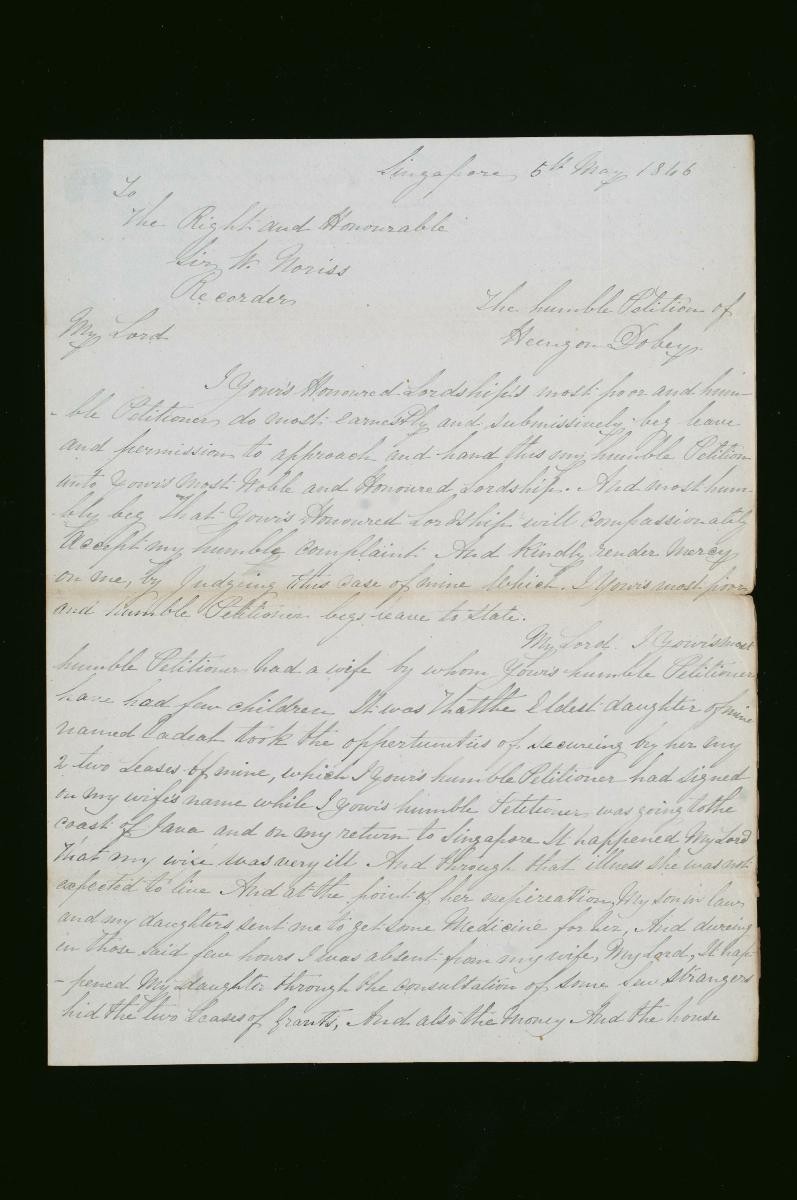 Singapore 5th May 1846
To
The Right and Honourable
Sir W. Noriss
Recorder
The humble Petition of
My Lord
Heengon Dobey
I Your's Honoured Lordship's most poor and hum-
-ble Petitioner do most earnestly and submissively beg leave
and permission to approach and hand this my humble Petition
unto Your's most Noble and Honoured Lordship. And most hum-
bly beg that Your's Honoured Lordship will compassionately
Accept my humble complaint And Kindly render Mercy
on me, by Judgeing this case of mine Which. I Your's most poor
and humble Petitioner begs leave to state.
My Lord. I Your's most
humble Petitioner had a wife by whom Your's humble Petitioner
have had few children It was that the Eldest daughter of mine
named took the oppertunitiis of secureing by her my
2 two Leases of mine, which I Your's humble Petitioner had signed
on my wife's name while I Your's humble Petitioner was going to the
coast of Java and on my return to Singapore It happened My Lord
that my wife was very ill And through that illness she was not
expected to live And at the point of her My son in law
and my daughters sent me to get some Medicine for her, And dureing
in those said few hours I was absent from my wife, My Lord, It hap-
-pened My daughter through the consultation of some few strangers
hid the two Leases of Grants, And also the Money And the house